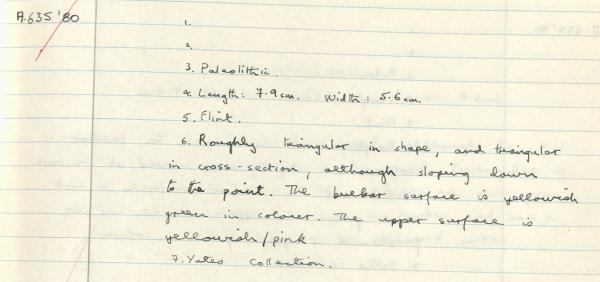 A.635 '80
1.
2.
3. Paleolithic.
4. Length: 7.9cm. Width: 5.6cm.
5. Flint.
6. Roughly triangular in shape, and triangular
in cross-section, although sloping down
to the point. The bulbar surface is yellowish
green in colour. The upper surface is
yellowish/pink.
7. Yates Collection.